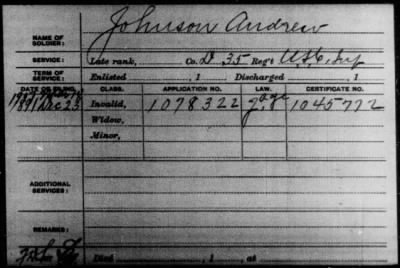 Johnson Andrew
NAME OF SOLDIER:
SERVICE: Late rank, Co. D 35 Reg't U.S.C. Inf
TERM OF SERVICE: Enlisted , 1 Discharged , 1
DATE OF FILING. CLASS. APPLICATION NO. LAW. CERTIFICATE NO.
1891 Dec 23 Invalid, 1078322 1045772
Widow,
Minor,
ADDITIONAL SERVICES:
REMARKS:
Died , 1 , at